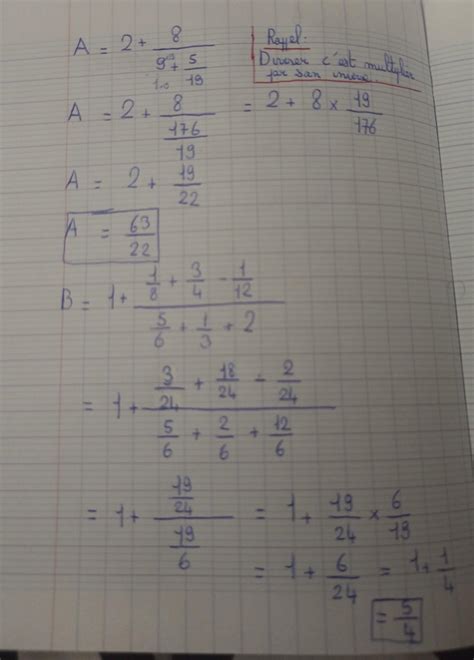 A = 2 + 8/(9 + 5/19)
Rappel:
Diviser c'est multiplier
par son inverse.
A = 2 + 8/(176/19) = 2 + 8 × 19/176
A = 2 + 19/22
A = 63/22
B = 1 + (1/8 + 3/4 - 1/12)/(5/6 + 1/3 + 2)
= 1 + (3/24 + 18/24 - 2/24)/(5/6 + 2/6 + 12/6)
= 1 + (19/24)/(19/6) = 1 + 19/24 × 6/19
= 1 + 6/24 = 1 + 1/4
= 5/4